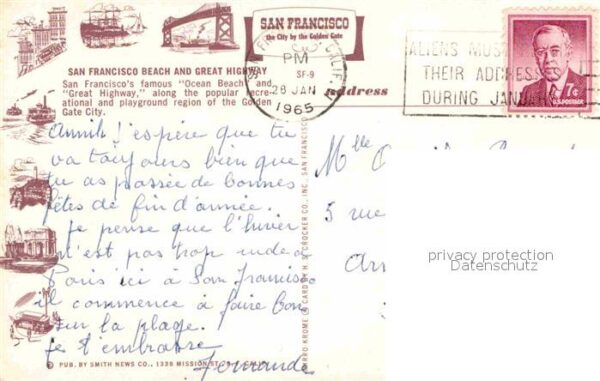 SAN FRANCISCO
the City by the Golden Gate
PM
28 JAN
1965
CALIF.
ALIENS MUST
THEIR ADDRESS
DURING JANUARY
7¢
U.S. POSTAGE
SAN FRANCISCO BEACH AND GREAT HIGHWAY
SF-9
San Francisco's famous "Ocean Beach" and
"Great Highway," along the popular recre-
ational and playground region of the Golden
Gate City.
Address
j'espère que tu
va toujours bien que
tu as passée de bonnes
fêtes de fin d'année.
Je pense que l'hiver
n'est pas trop rude à
Paris ici à San Francisco
il commence à faire bon
sur la plage.
Je t'embrasse
Fernande
Mlle
5 rue
Arr
privacy protection
Datenschutz
© PUB. BY SMITH NEWS CO., 1339 MISSION ST.
CROCKER CO., INC. SAN FRANCISCO